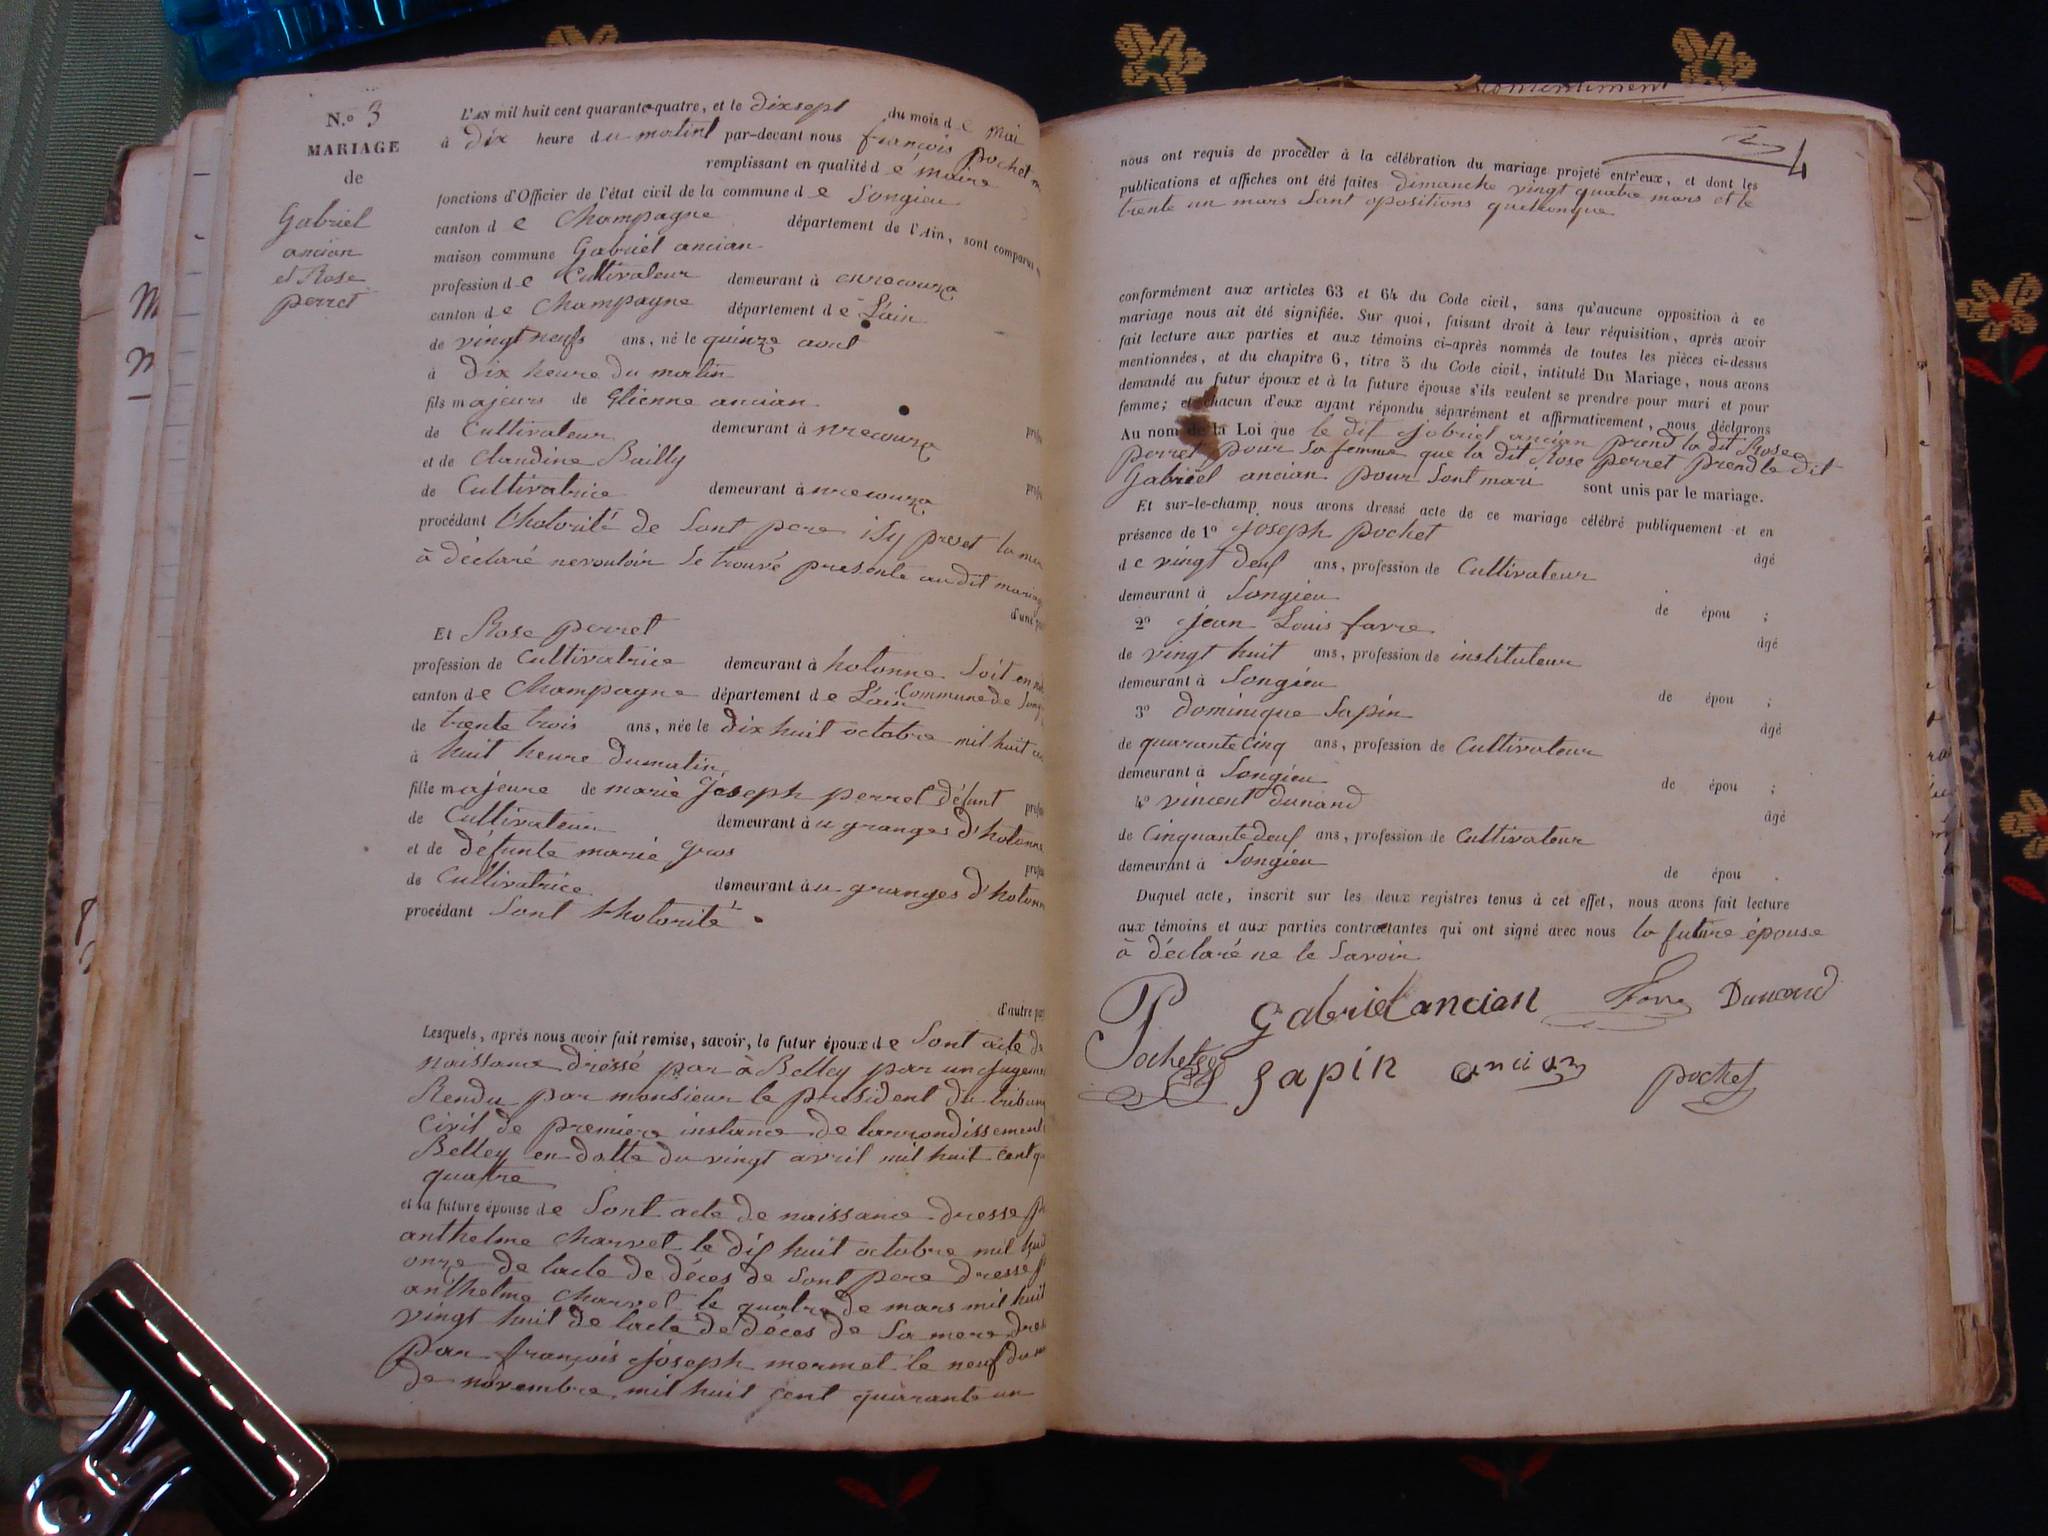 N.o 3
MARIAGE
de
Gabriel
ancian
et Rose
perret
L'AN mil huit cent quarante-quatre, et le dixsept du mois de mai
à dix heure du matint par-devant nous françois pochet
remplissant en qualité de maire
fonctions d'Officier de l'état civil de la commune de Songieu
canton de Champagne département de l'Ain, sont comparus
maison commune Gabriel ancian
profession de Cultivateur demeurant à
canton de Champagne département de L'ain
de vingt neufs ans, né le quinze
à dix heure du matin
fils majeurs de Etienne ancian
de Cultivateur demeurant à
et de Claudine Bailly
de Cultivatrice demeurant à
procédant Lhotorité de Sont pere isy preset la
à déclaré nevouloir Se trouvé presente audit
Et Rose perret
profession de Cultivatrice demeurant à hotonne Soit en
canton de Champagne département de L'ain Commune de
de trente trois ans, née le dix huit octobre mil huit
à huit heure dumatin
fille majeure de marie Joseph perret défunt
de Cultivateur demeurant à u granges d'hotonne
et de défunte marie gros
de Cultivatrice demeurant à u granges d'hotonne
procédant Sont Lhotorité
Lesquels, après nous avoir fait remise, savoir, le futur époux de Sont acte de
naissance dressé par à Belley par un
Rendu par monsieur le président du
Civil de premiere instance de larrondissement
Belley en datte du vingt avril mil huit cent
quatre
et la future épouse de Sont acte de naissance dresse
anthelme charvet le dix huit octobre mil huit
onze de lacte de déces de Sont pere dresse
anthelme charvet le quatre de mars mil huit
vingt huit de lacte de déces de Sa mere
par françois joseph mermet le neuf du
de novembre mil huit cent quarante un
4
nous ont requis de procéder à la célébration du mariage projeté entr'eux, et dont les
publications et affiches ont été faites dimanche vingt quatre mars et le
trente un mars Sant opositions quelconque
conformément aux articles 63 et 64 du Code civil, sans qu'aucune opposition à ce
mariage nous ait été signifiée. Sur quoi, faisant droit à leur réquisition, après avoir
fait lecture aux parties et aux témoins ci-après nommés de toutes les pièces ci-dessus
mentionnées, et du chapitre 6, titre 5 du Code civil, intitulé Du Mariage, nous avons
demandé au futur époux et à la future épouse s'ils veulent se prendre pour mari et pour
femme; et chacun d'eux ayant répondu séparément et affirmativement, nous déclarons
Au nom de la Loi que le dit gabriel ancian prend la dit Rose
perret pour Sa femme que la dit Rose perret prend le dit
Gabriel ancian pour Sont mari sont unis par le mariage.
Et sur-le-champ nous avons dressé acte de ce mariage célébré publiquement et en
présence de 1o joseph pochet âgé
de vingt deuf ans, profession de Cultivateur
demeurant à Songieu de épou ;
2o jean Louis favre âgé
de vingt huit ans, profession de instituteur
demeurant à Songieu de épou ;
3o dominique Sapin âgé
de quarante Cinq ans, profession de Cultivateur
demeurant à Songieu de épou ;
4o vincent dunand âgé
de Cinquante deuf ans, profession de Cultivateur
demeurant à Songieu de épou .
Duquel acte, inscrit sur les deux registres tenus à cet effet, nous avons fait lecture
aux témoins et aux parties contractantes qui ont signé avec nous la future épouse
à déclaré ne le Savoir
gabriel ancian Favre Dunand
Sapin ancian pochet